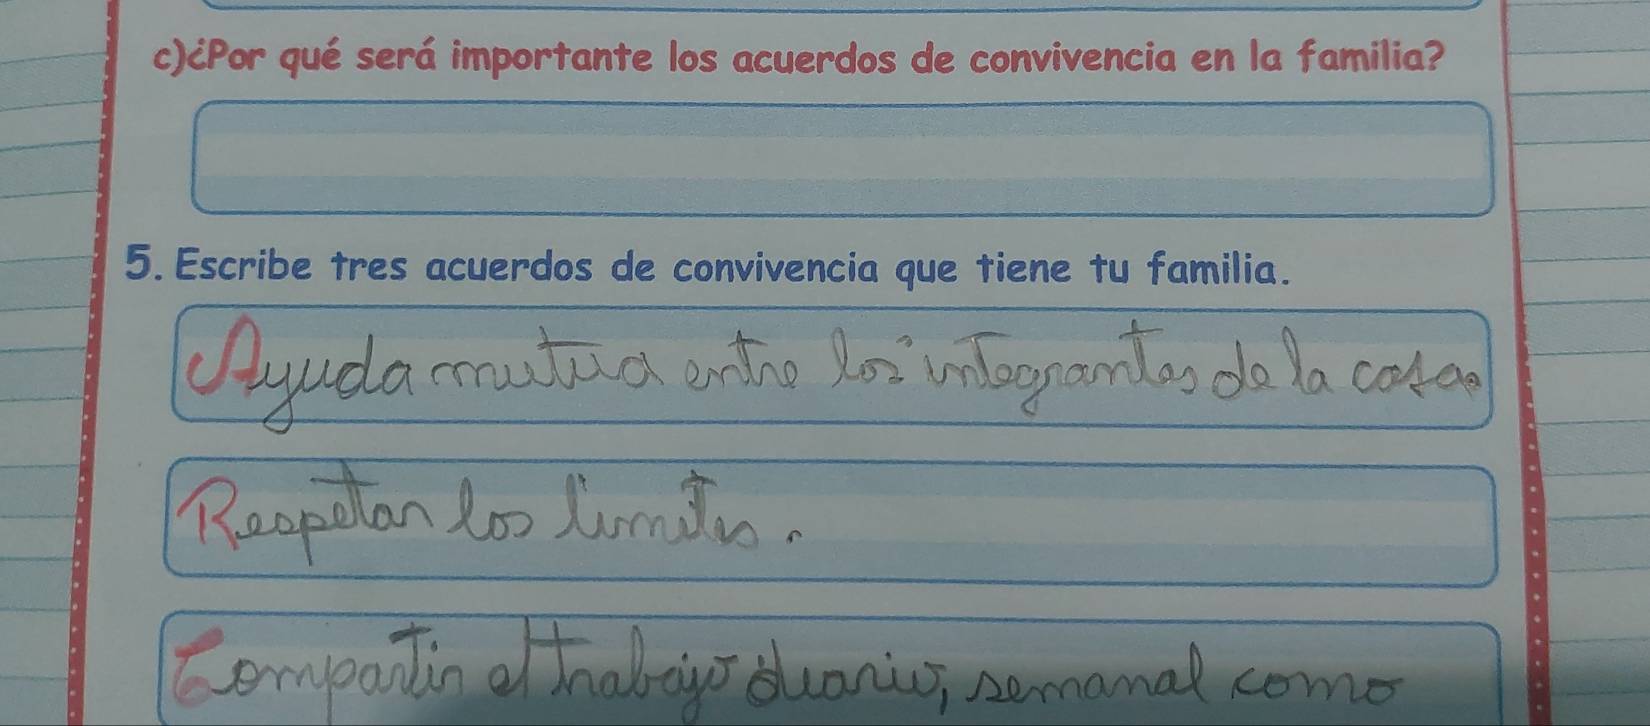 c)¿Por qué será importante los acuerdos de convivencia en la familia?
5. Escribe tres acuerdos de convivencia que tiene tu familia.
Ayuda mutua entre los integrantes de la casa.
Respetar los límites.
Compartir el trabajo diario, semanal como